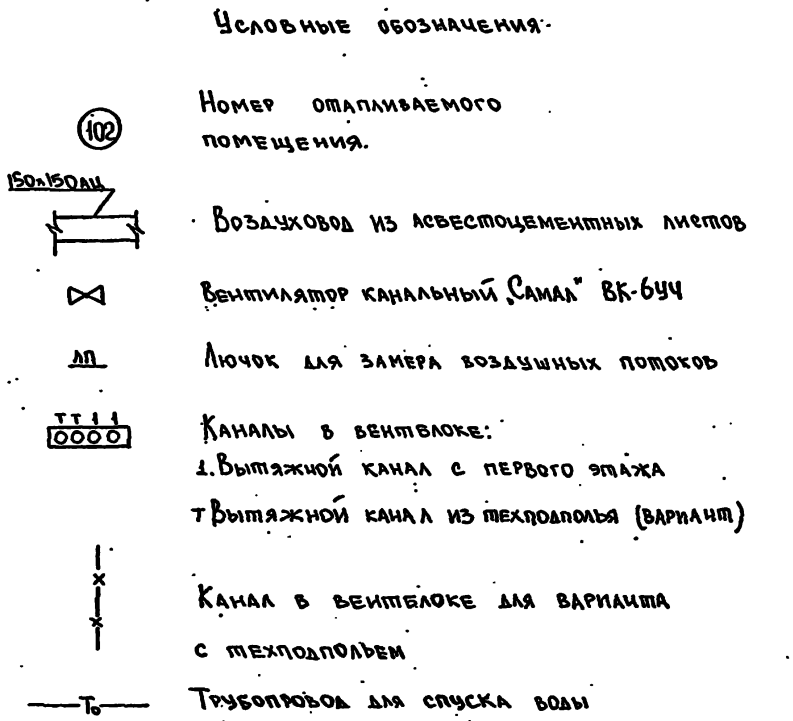 Условные обозначения.
102
Номер отапливаемого
помещения.
150x150АЦ
Воздуховод из асбестоцементных листов
Вентилятор канальный „Самал" ВК-6У4
ЛП Лючок для замера воздушных потоков
Т Т 1 1
Каналы в вентблоке:
1. Вытяжной канал с первого этажа
Т Вытяжной канал из техподполья (вариант)
Канал в вентблоке для варианта
с техподпольем
То Трубопровод для спуска воды